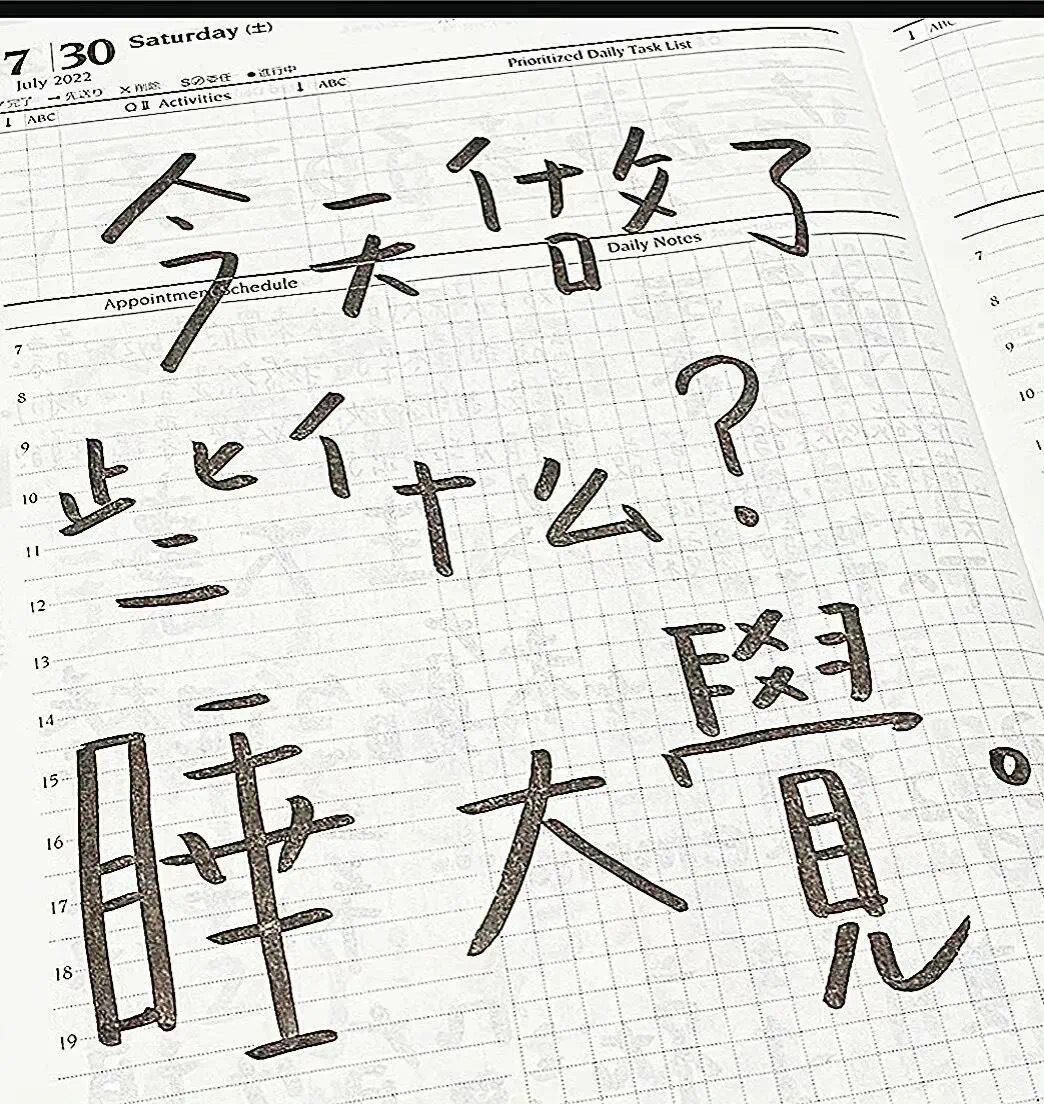 7 30 Saturday (土)
July 2022
完了 → 先送り × 削除 S⊘委任 ● 進行中
Prioritized Daily Task List
↓ ABC ○Ⅱ Activities ↓ ABC
↓ ABC
今天做了
Appointment Schedule
Daily Notes
些什么?
睡大覺。
7
8
9
10
11
12
13
14
15
16
17
18
19
7
8
9
10